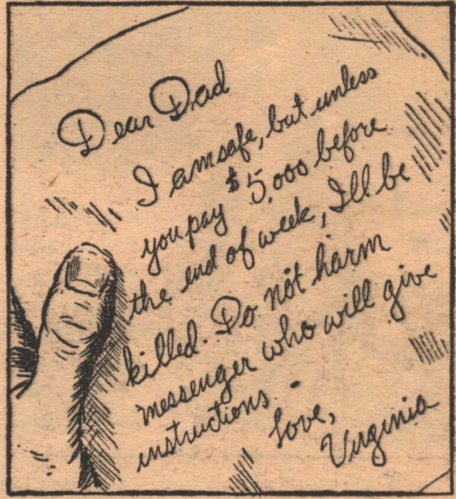 Dear Dad
I am safe, but unless
you pay $5,000 before
the end of week, I'll be
killed. Do not harm
messenger who will give
instructions.
Love,
Virginia